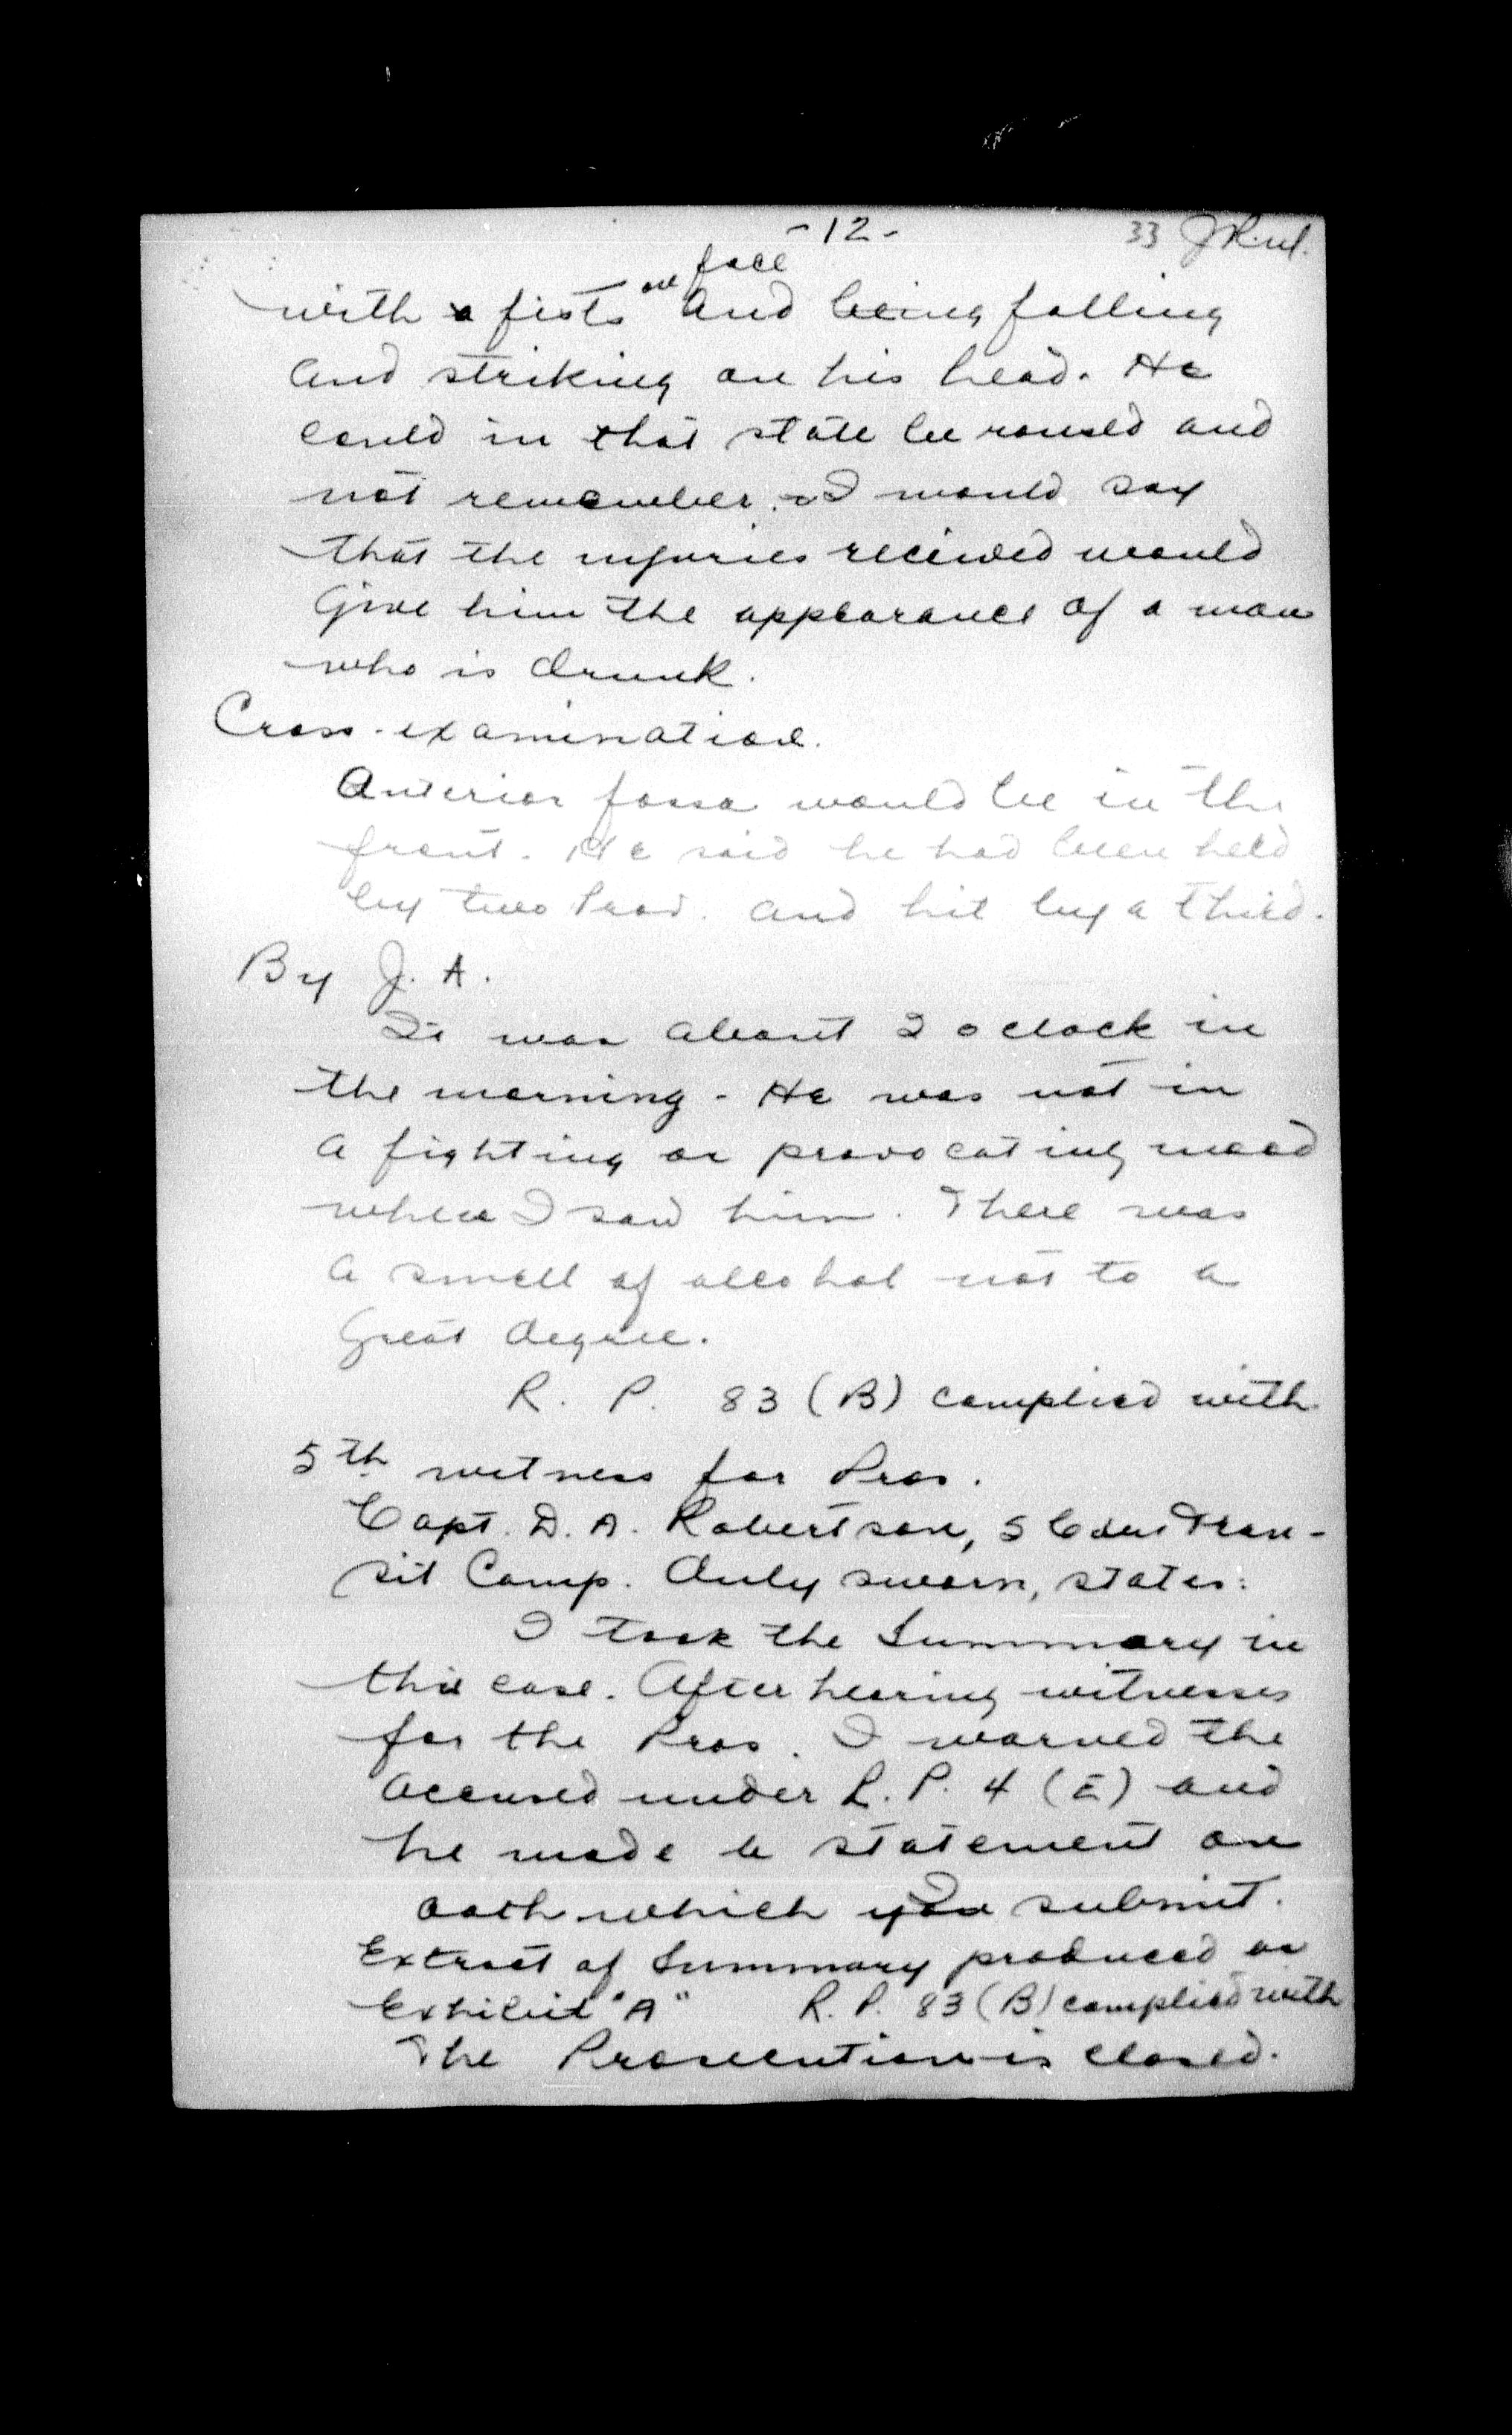 - 12 -
33
face
with a fists on and being falling
and striking on his head. He
could in that state be roused and
not remember. I would say
that the injuries received would
give him the appearance of a man
who is drunk.
Cross-examination.
Anterior fossa would be in the
front. He said he had been held
by two Prov. and hit by a third.
By J. A.
It was about 2 o clock in
the morning - He was not in
a fighting or provocating mood
when I saw him. There was
a smell of alcohol not to a
great degree.
R. P. 83 (B) complied with
5th witness for Pros.
Capt. D. A. Robertson, 5 Cdn Tran-
sit Camp. Duly sworn, states:
I took the Summary in
this case. After hearing witnesses
for the Pros. I warned the
accused under R. P. 4 (E) and
he made a statement on
oath which I submit.
Extract of Summary produced as
Exhibit "A" R. P. 83 (B) complied with
The Prosecution is closed.